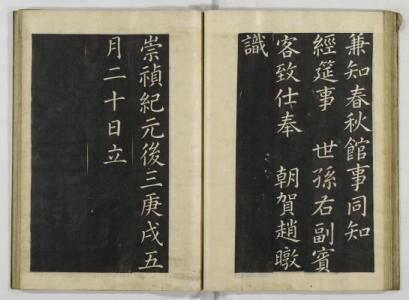 兼知春秋館事同知
經筵事　世孫右副賓
客致仕奉　朝賀趙暾
識
崇禎紀元後三庚戌五
月二十日立